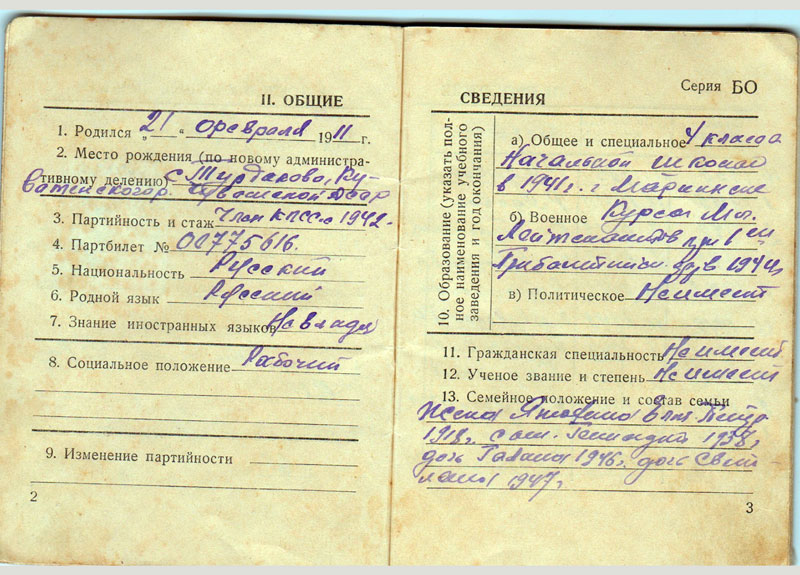 II. ОБЩИЕ
1. Родился „21“ февраля 1911 г.
2. Место рождения (по новому административному
тивному делению) с.
3. Партийность и стаж Член КПСС с 1942
4. Партбилет № 00775616.
5. Национальность Русский
6. Родной язык Русский
7. Знание иностранных языков Не владеет
8. Социальное положение Рабочий
9. Изменение партийности
2
Серия БО
СВЕДЕНИЯ
10. Образование (указать пол-
ное наименование учебного
заведения и год окончания)
а) Общее и специальное 4 класса
Начальной школы
в г. Мариинске
б) Военное Курсы Мл.
Лейтенантов при 1
в
в) Политическое Не имеет
11. Гражданская специальность Не имеет
12. Ученое звание и степень Не имеет
13. Семейное положение и состав семьи
Жена
1918г. сын Геннадий 1938г
дочь Галина 1946г. дочь Свет-
лана 1947г
3